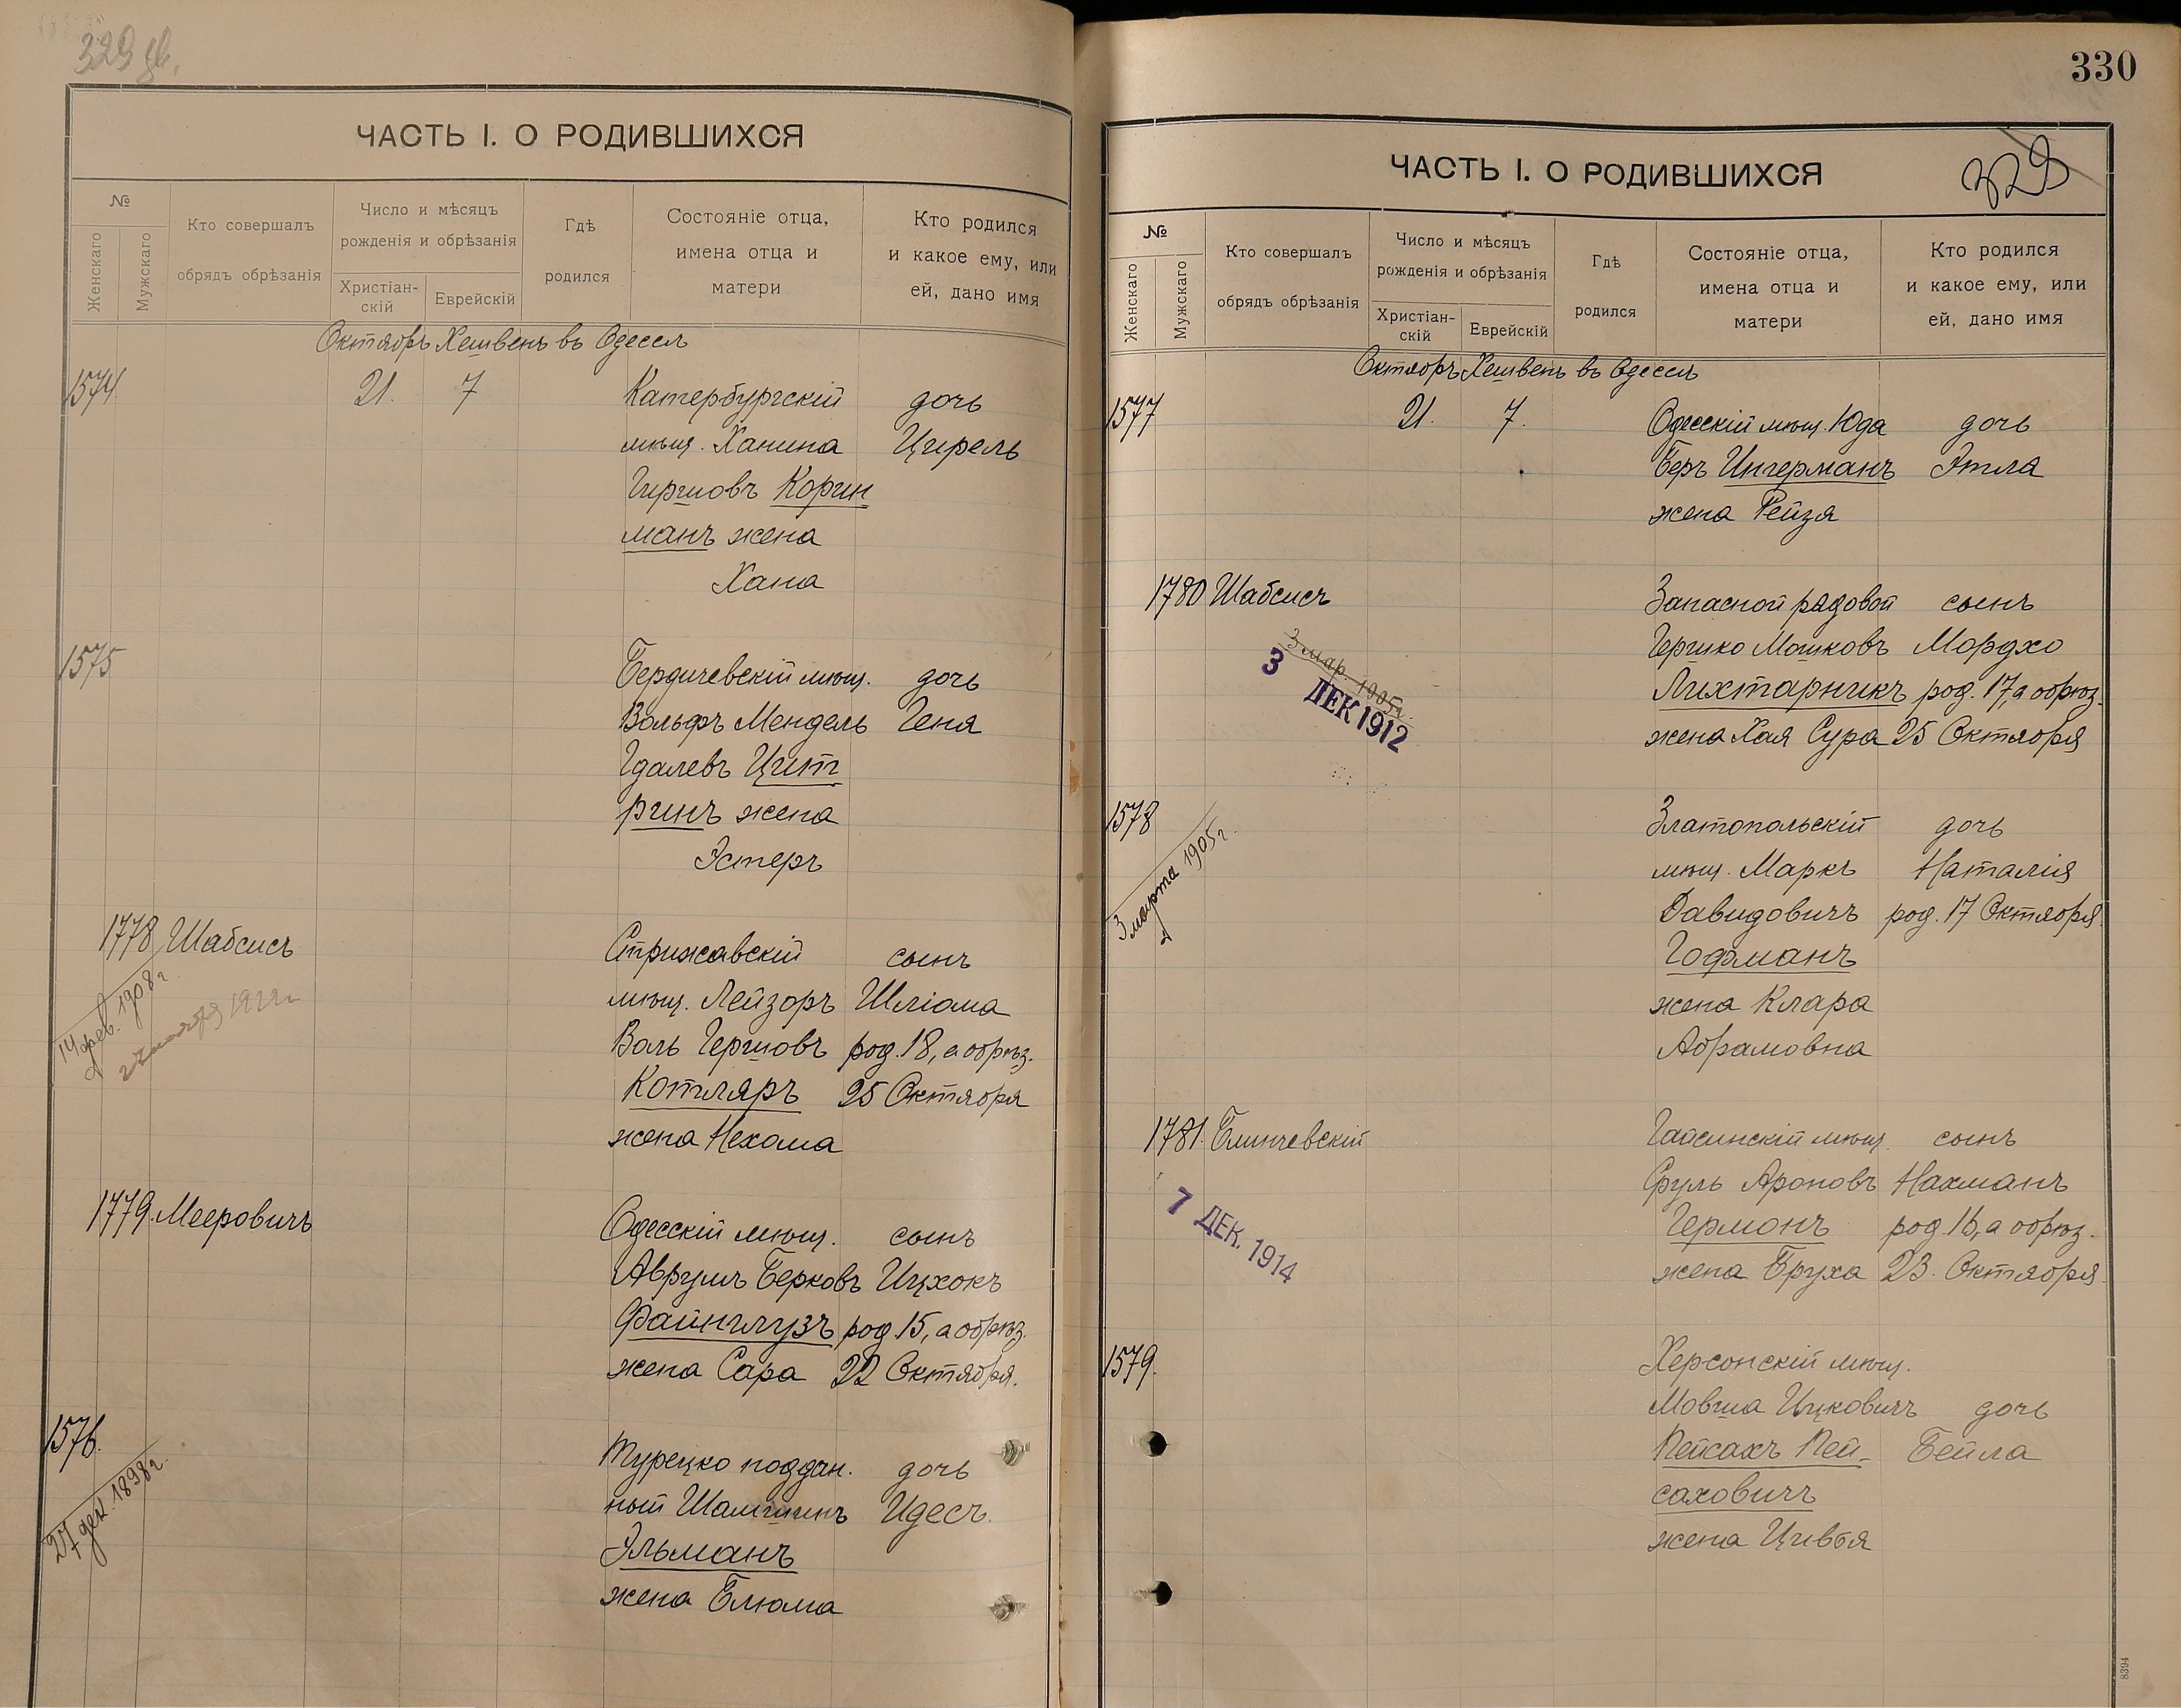 329 об.
ЧАСТЬ I. О РОДИВШИХСЯ
№
Женскаго
Мужскаго
Кто совершалъ
обрядъ обрѣзанія
Число и мѣсяцъ
рожденія и обрѣзанія
Христіан-
скій
Еврейскій
Гдѣ
родился
Состояніе отца,
имена отца и
матери
Кто родился
и какое ему, или
ей, дано имя
Октябрь Хешвенъ въ Одессѣ
1574 21. 7 Катербургскій дочь
мѣщ. Ханина Цирель
Гершовъ Корин
манъ жена
Хана
1575 Бердичевскій мѣщ. дочь
Вольфъ Мендель Геня
Гдалевъ Цит
ринъ жена
Эстеръ
1778 Шабсисъ Стрижавскій сынъ
14 фев. 1908 г.
мѣщ. Лейзоръ Шліома
Воль Гершовъ род. 18, а обрѣз.
Котляръ 25 Октября
жена Нехама
1779. Мееровичъ Одесскій мѣщ. сынъ
Аврумъ Берковъ Ицхокъ
Файнглузъ род. 15, а обрѣз.
жена Сара 22 Октября.
1576.
27 дек. 1898 г.
Турецко поддан. дочь
ный Идесъ.
Эльманъ
жена Блюма
330
329
ЧАСТЬ I. О РОДИВШИХСЯ
№
Женскаго
Мужскаго
Кто совершалъ
обрядъ обрѣзанія
Число и мѣсяцъ
рожденія и обрѣзанія
Христіан-
скій
Еврейскій
Гдѣ
родился
Состояніе отца,
имена отца и
матери
Кто родился
и какое ему, или
ей, дано имя
Октябрь Хешвень въ Одессѣ
1577 21. 7. Одесскій мѣщ. Юда дочь
Беръ Ингерманъ Этла
жена Рейзя
1780 Шабсисъ Запасной рядовой сынъ
3 мар. 1905 г.
3 ДЕК 1912
Гершко Мошковъ Мордхо
Лихтарникъ род. 17, а обрѣз.
жена Хая Сура 25 Октября
1578 Златопольскій дочь
3 марта 1905 г.
мѣщ. Маркъ Наталія
Давидовичъ род. 17 Октября
Гофманъ
жена Клара
Абрамовна
1781. Блинчевскій Гайсинскій мѣщ. сынъ
7 ДЕК. 1914
Сруль Ароновъ Нахманъ
Гермонъ род. 16, а обрѣз.
жена Бруха 23. Октября
1579. Херсонскій мѣщ.
Мовша Ицковичъ дочь
Пейсахъ Пей- Бейла
саховичъ
жена Цивья
8394